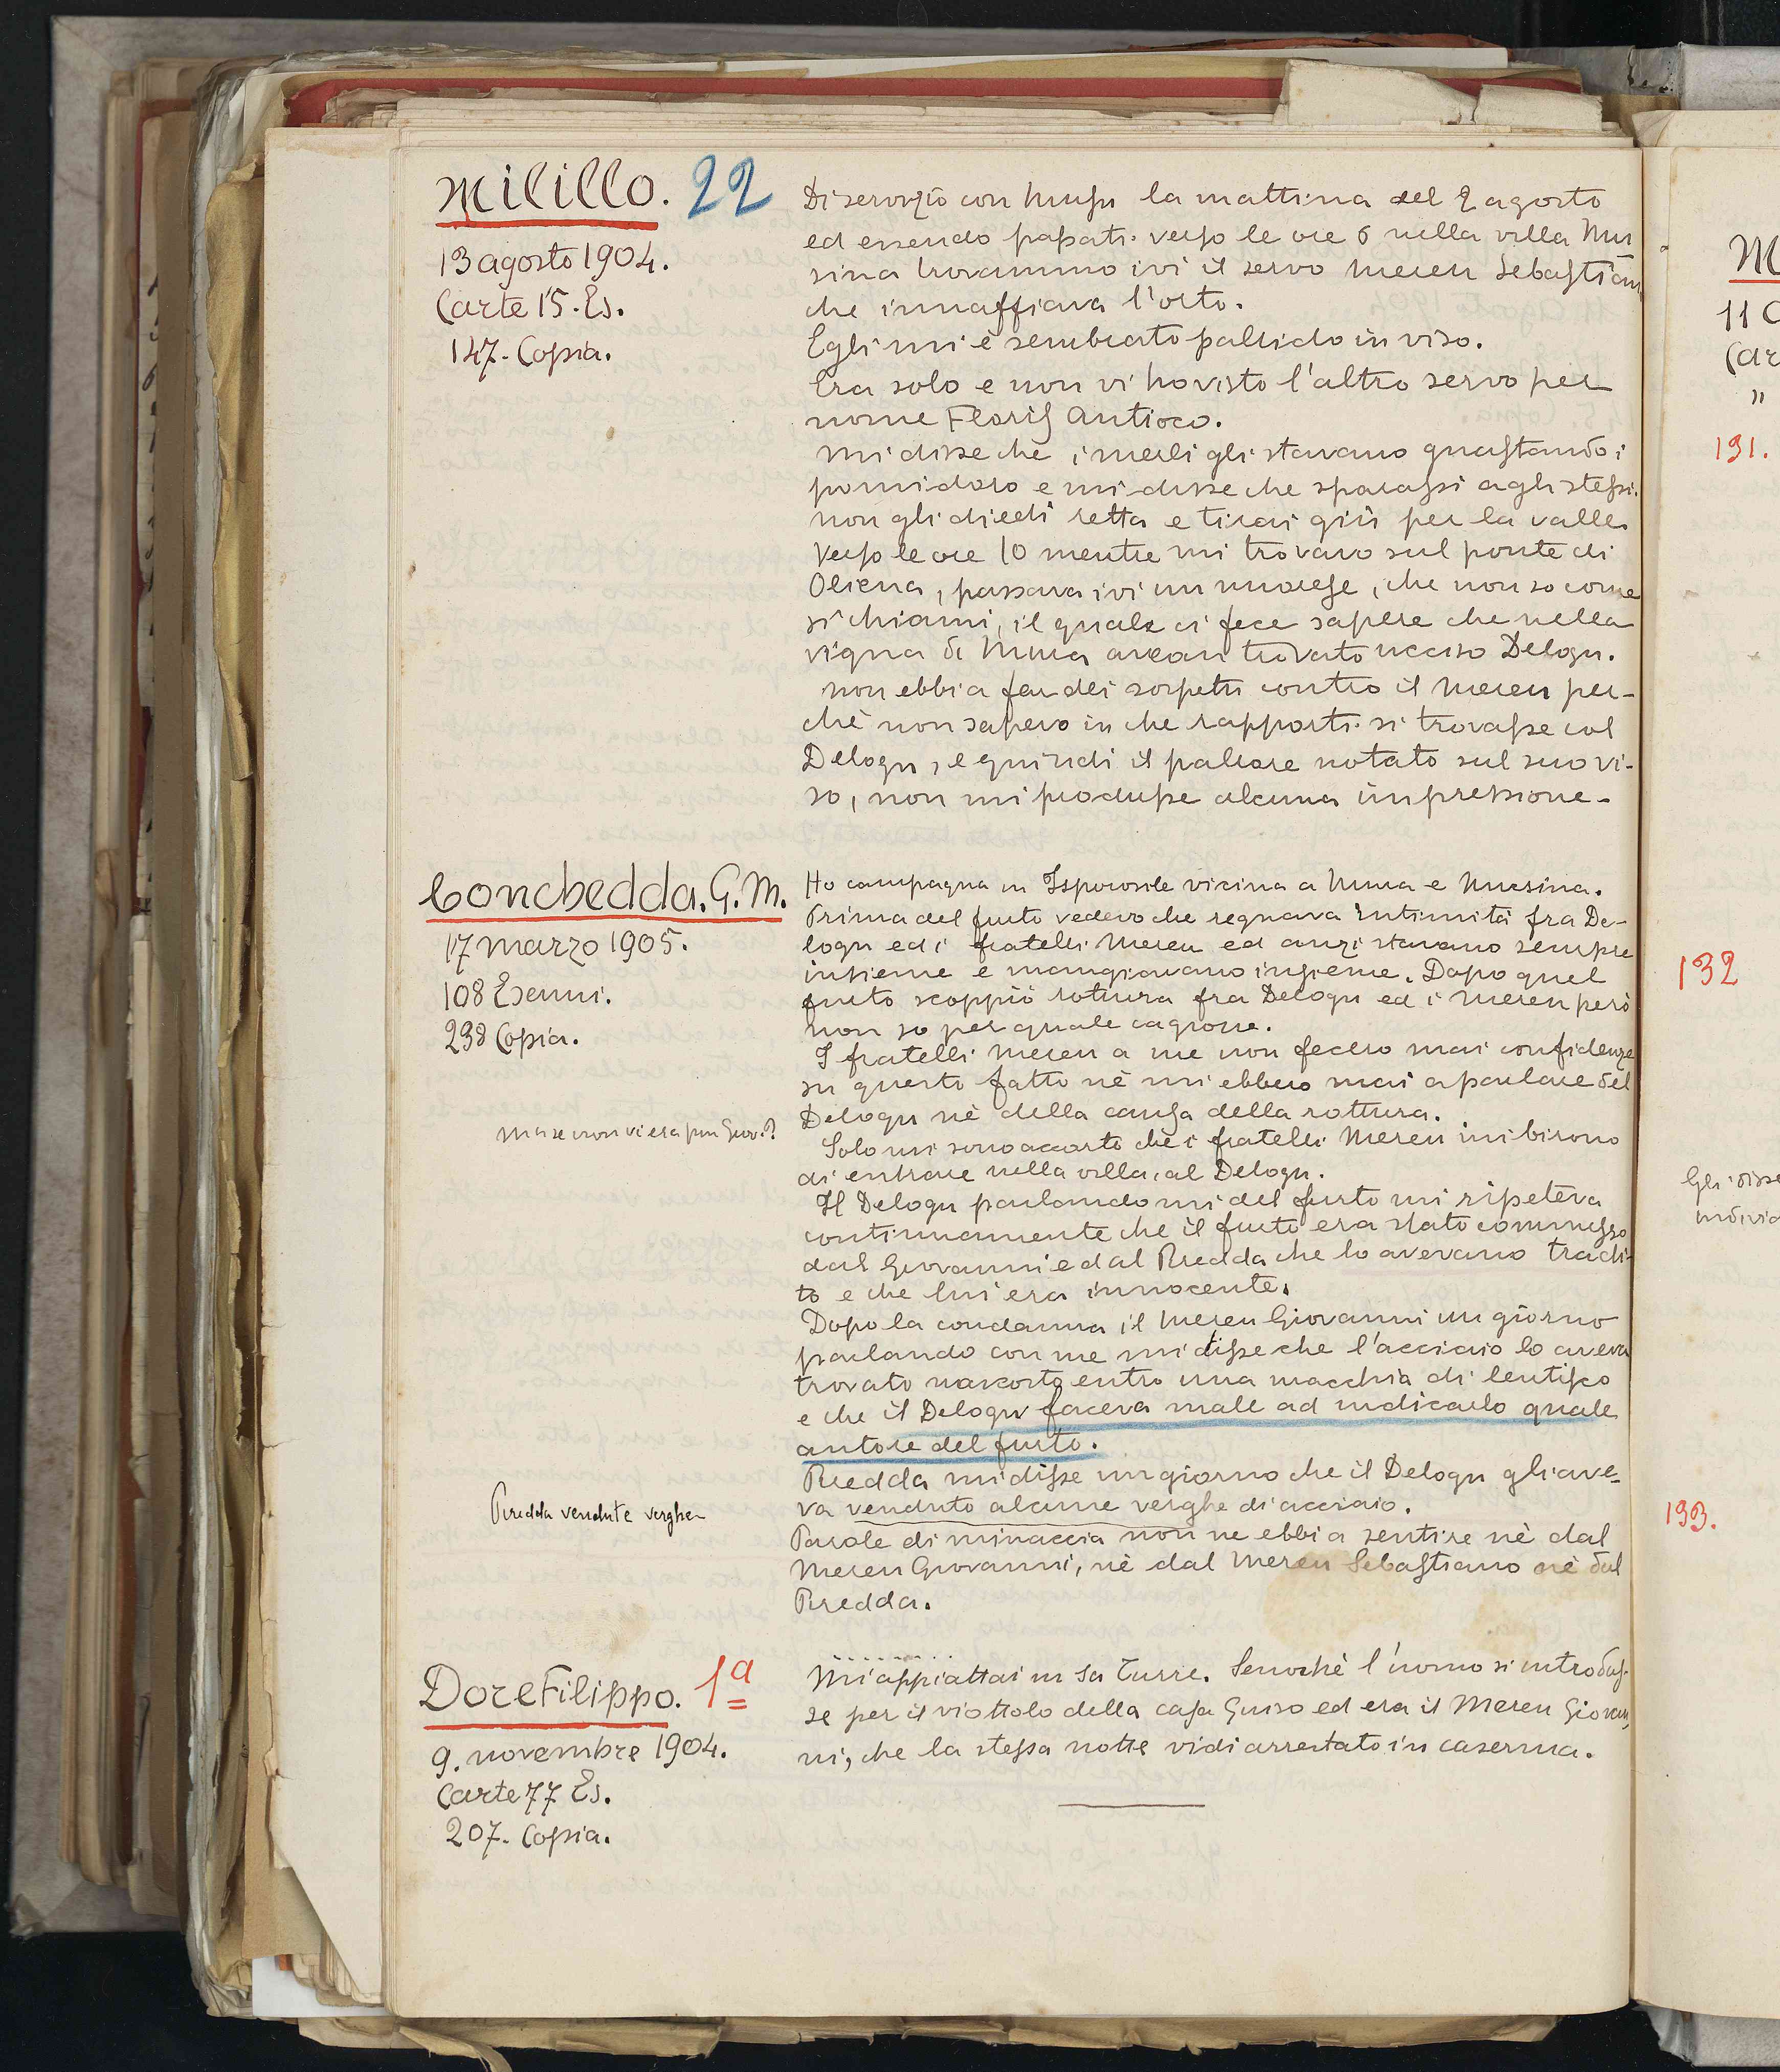 Milillo. 22
13 agosto 1904.
Carte 15. Es.
147. Copia.
Di servizio con Mussu la mattina del 2 agosto
ed essendo passati verso le ore 6 nella villa Mur
sina trovammo ivi il servo Mereu Sebastian
che innaffiava l'orto.
Egli mi è sembrato pallido in viso.
Era solo e non vi ho visto l'altro servo per
nome Floris Antioco.
Mi disse che i merli gli stavano guastando i
pomidoro e mi disse che sparassi agli stessi.
Non gli diedi retta e tirai giù per la valle.
Verso le ore 10 mentre mi trovavo sul ponte di
Oliena, passava ivi un nuorese, che non so come
si chiami, il quale ci fece sapere che nella
vigna di Murra avean trovato ucciso Delogu.
Non ebbi a far dei sospetti contro il Mereu per-
chè non sapevo in che rapporti si trovasse col
Delogu, e quindi il pallore notato sul suo vi-
so, non mi produsse alcuna impressione.
Conchedda. G. M.
17 marzo 1905.
108 Esami.
238 Copia.
Ho campagna in vicina a Murra e Mursina.
Prima del furto vedevo che regnava intimità fra De-
logu ed i fratelli Mereu ed anzi stavano sempre
insieme e mangiavano insieme. Dopo quel
furto scoppiò rottura fra Delogu ed i Mereu però
non so per quale cagione.
I fratelli Mereu a me non fecero mai confidenze
su questo fatto nè mi ebbero mai a parlare del
Delogu nè della causa della rottura.
Ma se non vi era più Giov.?
Solo mi sono accorto che i fratelli Mereu inibirono
di entrare nella villa, al Delogu.
Il Delogu parlandomi del furto mi ripeteva
continuamente che il furto era stato commesso
dal Giovanni e dal Piredda che lo avevano tradi-
to e che lui era innocente.
Dopo la condanna il Mereu Giovanni un giorno
parlando con me mi disse che l'acciaio lo aveva
trovato nascosto entro una macchia di lentisco
e che il Delogu faceva male ad indicarlo quale
autore del furto.
Piredda mi disse un giorno che il Delogu gli ave-
va venduto alcune verghe di acciaio.
Piredda vendute verghe
Parole di minaccia non ne ebbi a sentire nè dal
Mereu Giovanni, nè dal Mereu Sebastiano nè dal
Piredda.
Dore Filippo. 1ª
9. novembre 1904.
Carte 77 Es.
207. Copia.
.........
Mi appiattai in Sa Turre. Senochè l'uomo si introdus-
se per il viottolo della casa Guiso ed era il Mereu Giovan
ni, che la stessa notte vidi arrestato in caserma.
M
11
(Car
"
131.
132
Gli disse
individ
133.